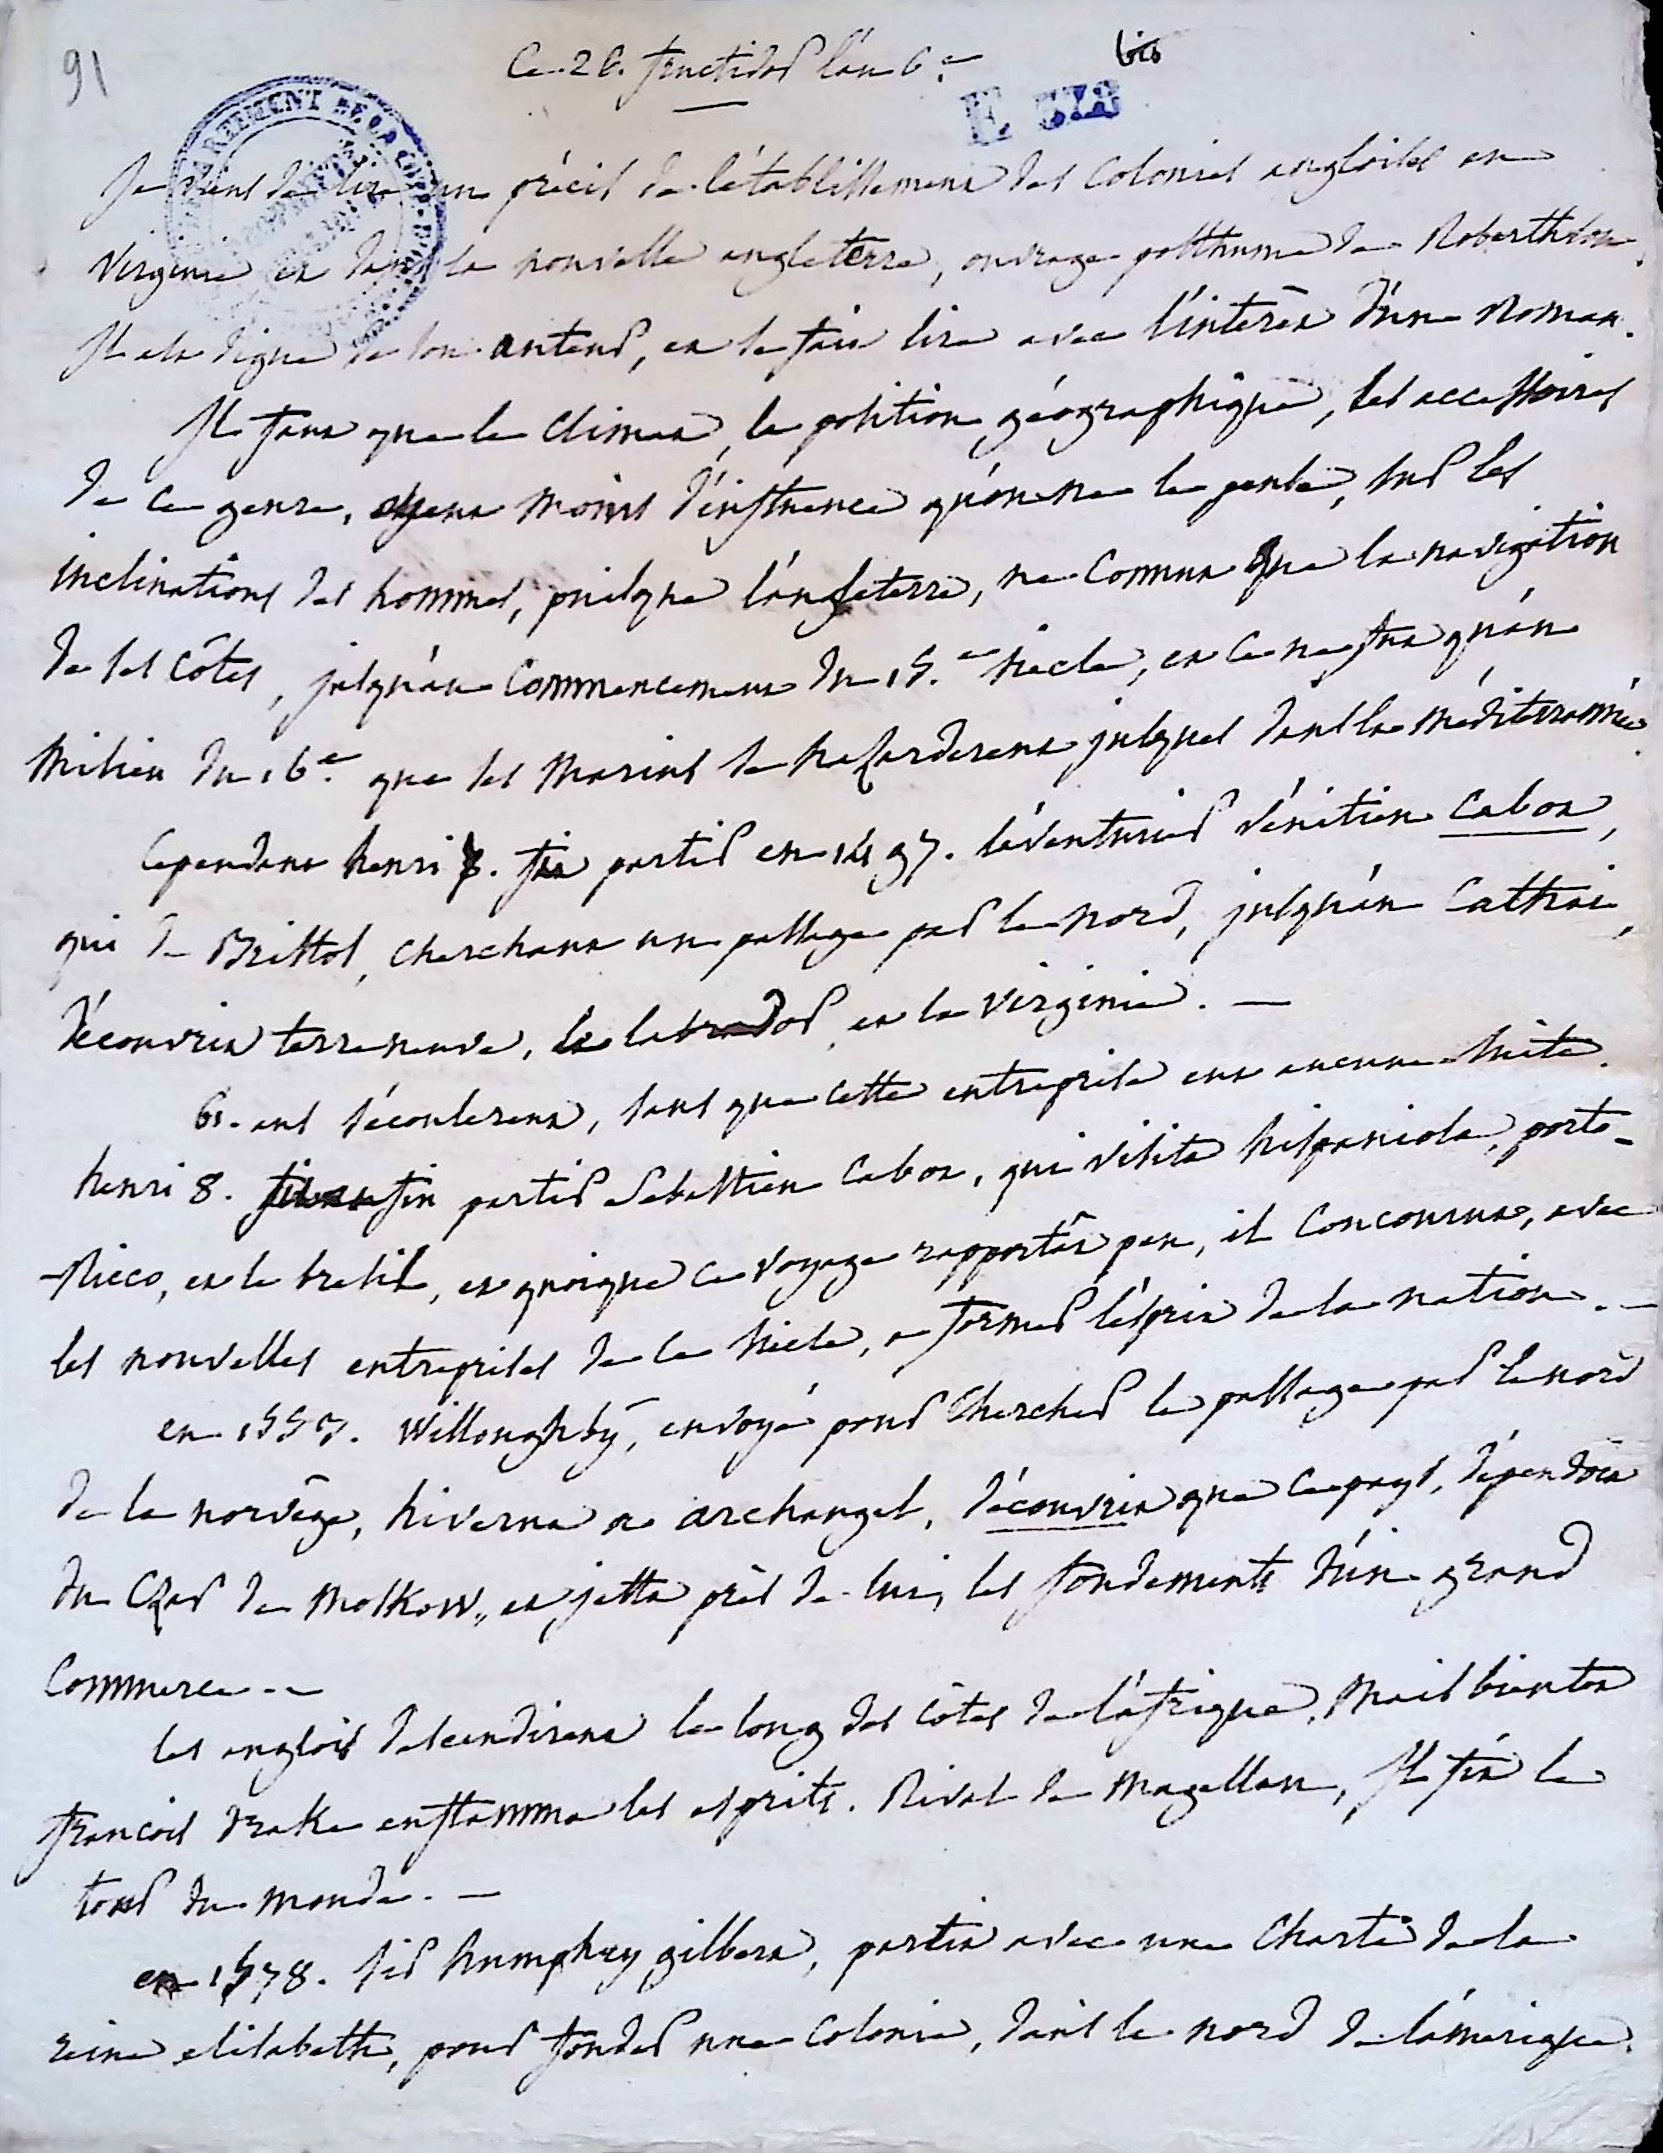 91
Ce 26. fructidor l'an 6.e
bis
E 378
je viens de lire un précis de l'établissement des colonies angloises en
virginie et dans la nouvelle angleterre, ouvrage posthume de Roberthson.
Il est digne de son auteur, et se fait lire avec l'intérêt d'un Roman.
Il faut que le climat, la position géographique, les accessoires
de ce genre, ayent moins d'influence qu'on ne le pense, sur les
inclinations des hommes, puisque l'angleterre, ne connut que la navigation
de ses côtes, jusqu'au commencement du 15.e siècle, et ce ne fut qu'au
milieu du 16.e que ses marins se hazarderent jusques dans la méditerrannée.
Cependant henri 7. fit partir en 1497. l'aventurier vénitien Cabot,
qui de Bristol, cherchant un passage par le nord, jusqu'au Cathai,
découvrit terreneuve, le labrador et la virginie. —
61. ans s'écoulerent, sans que cette entreprise eut aucune suite.
henri 8. fit partir sebastien Cabot, qui visita hispaniola, porto-
-Ricco, et le bresil, et quoique ce voyage rapportât peu, il concourut, avec
les nouvelles entreprises de ce siecle, a former l'esprit de la nation. —
en 1553. Willoughby, envoyé pour chercher le passage par le nord
de la norvège, hiverna a archangel, découvrit que ce pays, dépendoit
du Czar de Moskow, et jetta près de lui, les fondements d'un grand
Commerce. —
les anglois descendirent le long des côtes de l'afrique, mais bientot
francois drake enflamma les esprits. Rival de Magellan, Il fit le
tour du monde. —
en 1578. sir humphry gilbert, partit avec une charte de la
reine elisabeth, pour fonder une colonie, dans le nord de l'amerique.